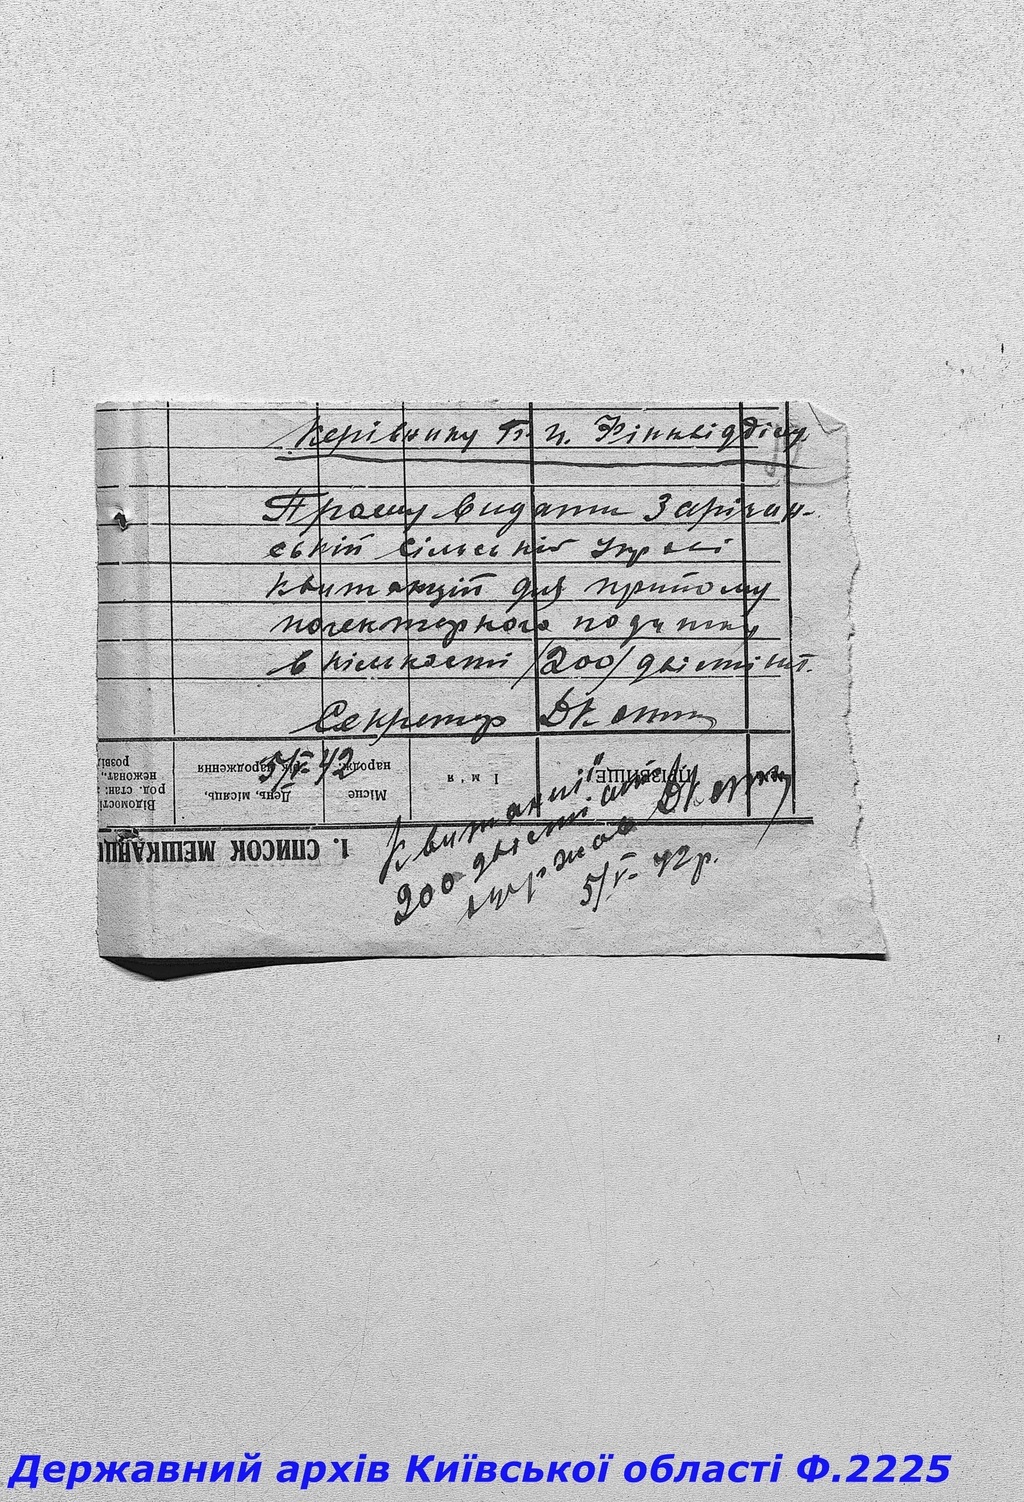 Керівнику Б. Ц. Фінквідділу
Прошу видати Зарічан-
ській сільській управі
квитанцій для прийому
погектарного податку
в кількості /200/ двісті шт.
Секретар
5/V- 42
Відомості
род. стан:
нежонат.,
розві
День, місяць,
рік народження
Місце
народж.
Ім'я
ПРІЗВИЩЕ
1. СПИСОК МЕШКАНЦІ
Квитанції
200 двісті шт.
одержав
5/V- 42 р.
Державний архів Київської області Ф.2225